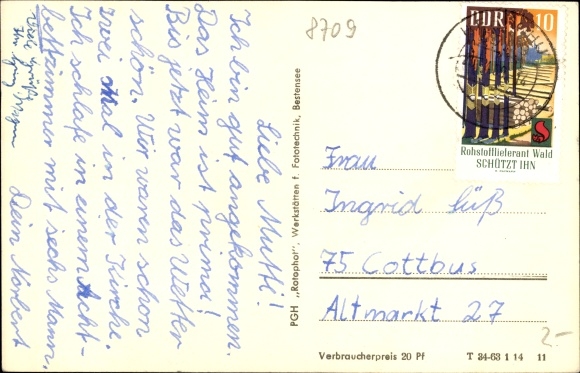 Liebe Mutti!
Ich bin gut angekommen.
Das Heim ist prima!
Bis jetzt war das Wetter
schön. Wir waren schon
zwei Mal in der Kirche.
Ich schlafe in einem Acht-
bettzimmer mit sechs Mann.
Dein Norbert
Viele Grüße
PGH „Rotophot", Werkstätten f. Fototechnik, Bestensee
8709
DDR 10
Rohstofflieferant Wald
SCHÜTZT IHN
Frau
Ingrid Süß
75 Cottbus
Altmarkt 27
2-
Verbraucherpreis 20 Pf
T 34-63 1 14 11